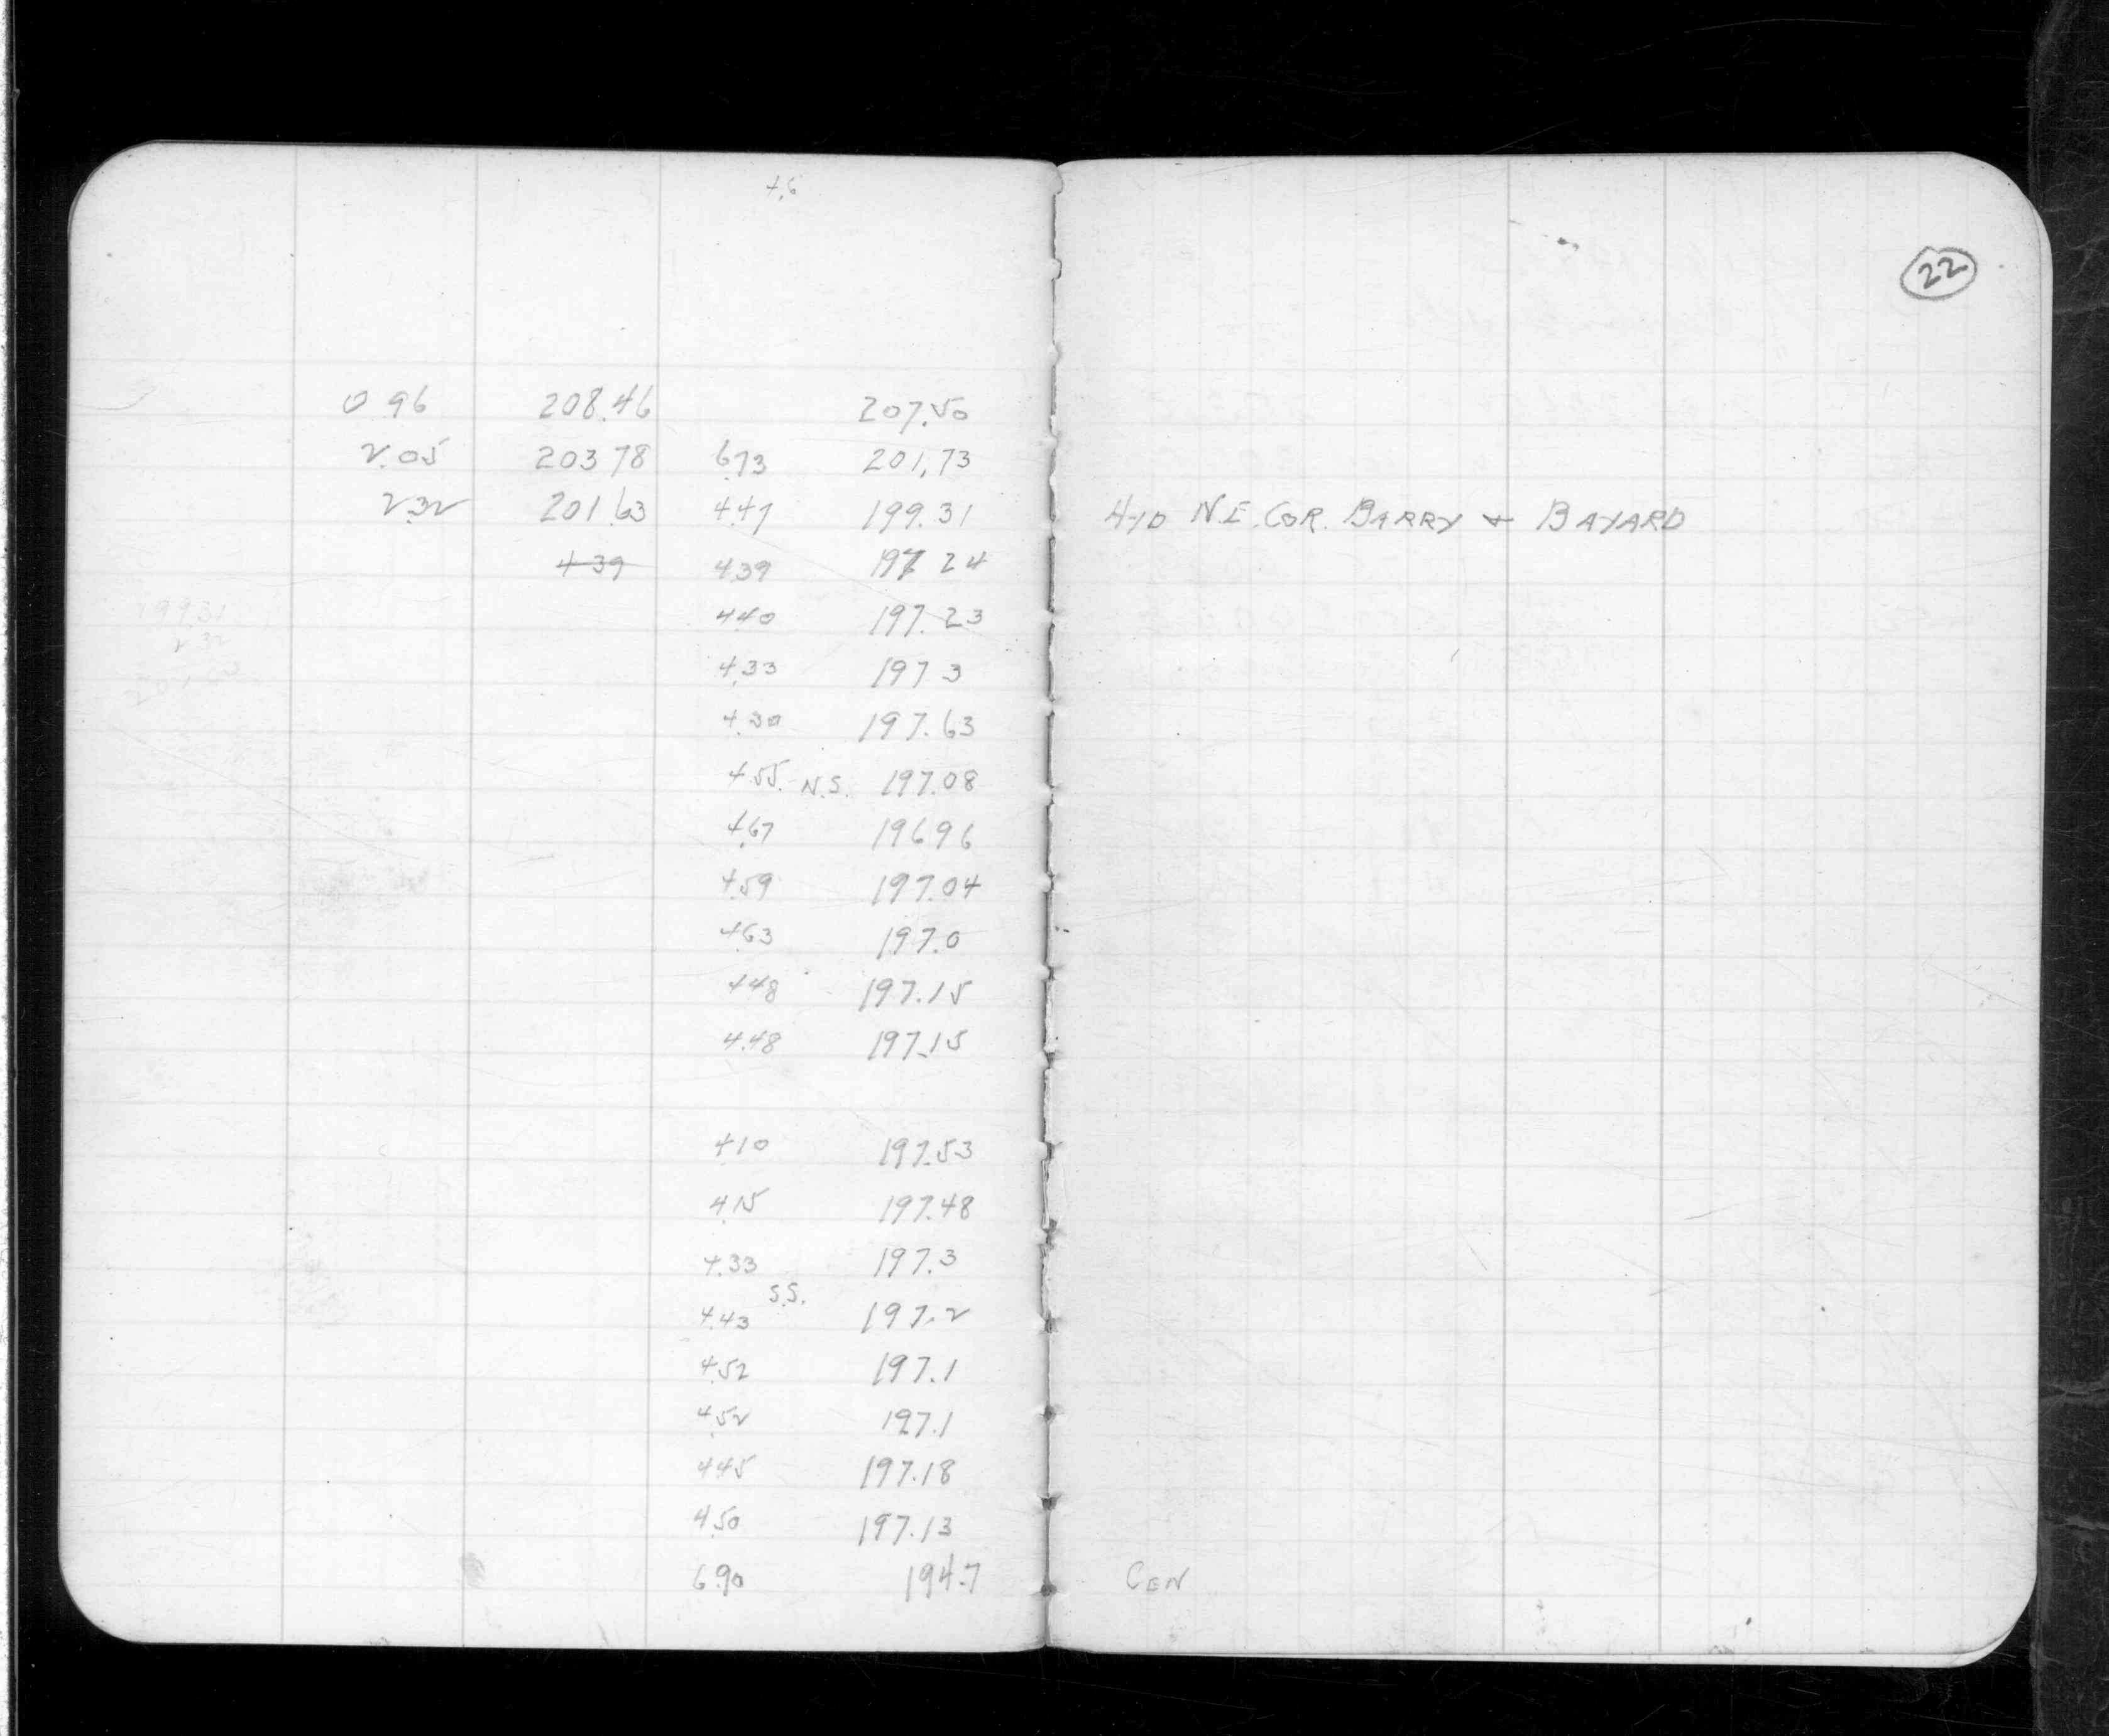 4.6
22
0 96 208.46 207.50
2.05 203 78 6.73 201.73
2.32 201.63 4.47 199.31 HYD N.E. COR. BARRY + BAYARD
4 39 4.39 197 24
199.31
4.40 197.23
2 32
201 63
4.33 197 3
4.30 197.63
4.55 N.S. 197.08
4.67 196 96
4.59 197.04
4.63 197.0
4.48 197.15
4.48 197.15
4.10 197.53
4.15 197.48
4.33 197.3
S.S.
4.43 197.2
4.52 197.1
4.52 197.1
4.45 197.18
4.50 197.13
6.90 194.7 CEN